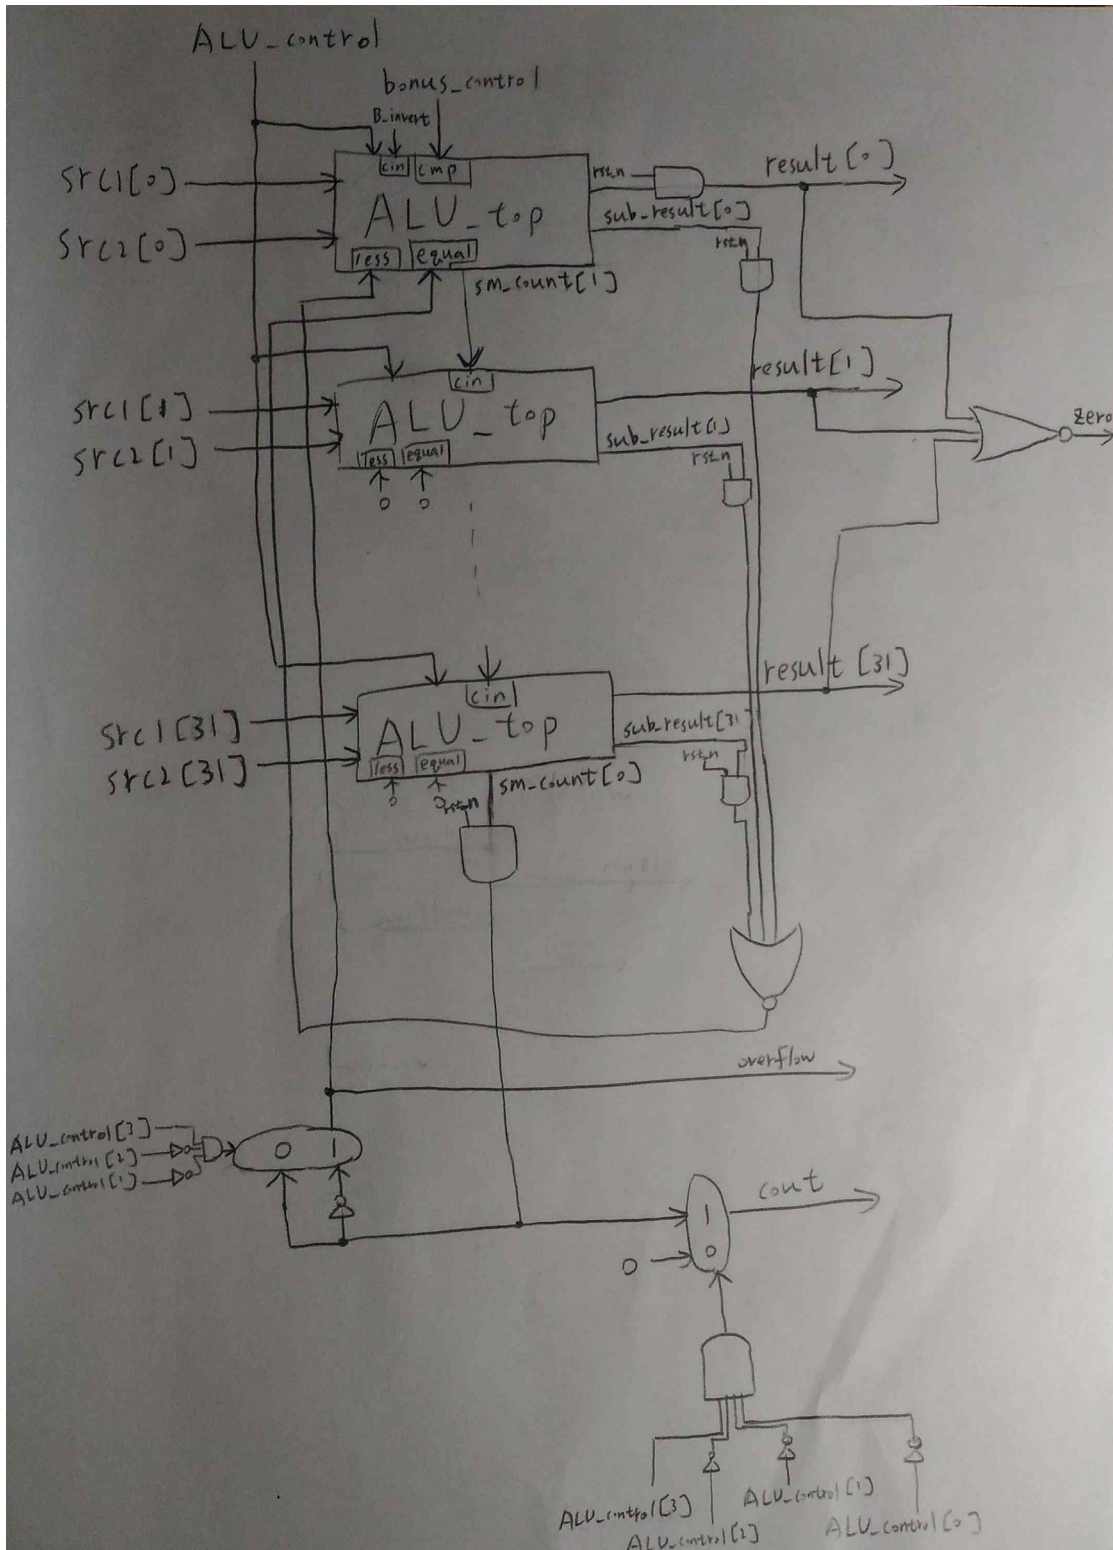 ALU_control
bonus_control
B_invert
cin cmp
src1[0]
src2[0]
ALU_top
less equal
rst_n
result[0]
sub_result[0]
rst_n
sm_count[1]
src1[1]
src2[1]
cin
ALU_top
less equal
0 0
result[1]
sub_result[1]
rst_n
zero
src1[31]
src2[31]
cin
ALU_top
less equal
0 0
result[31]
sub_result[31]
rst_n
rst_n
sm_count[0]
overflow
ALU_control[3]
ALU_control[2]
ALU_control[1]
0 1
cout
1
0
0
ALU_control[3]
ALU_control[2]
ALU_control[1]
ALU_control[0]